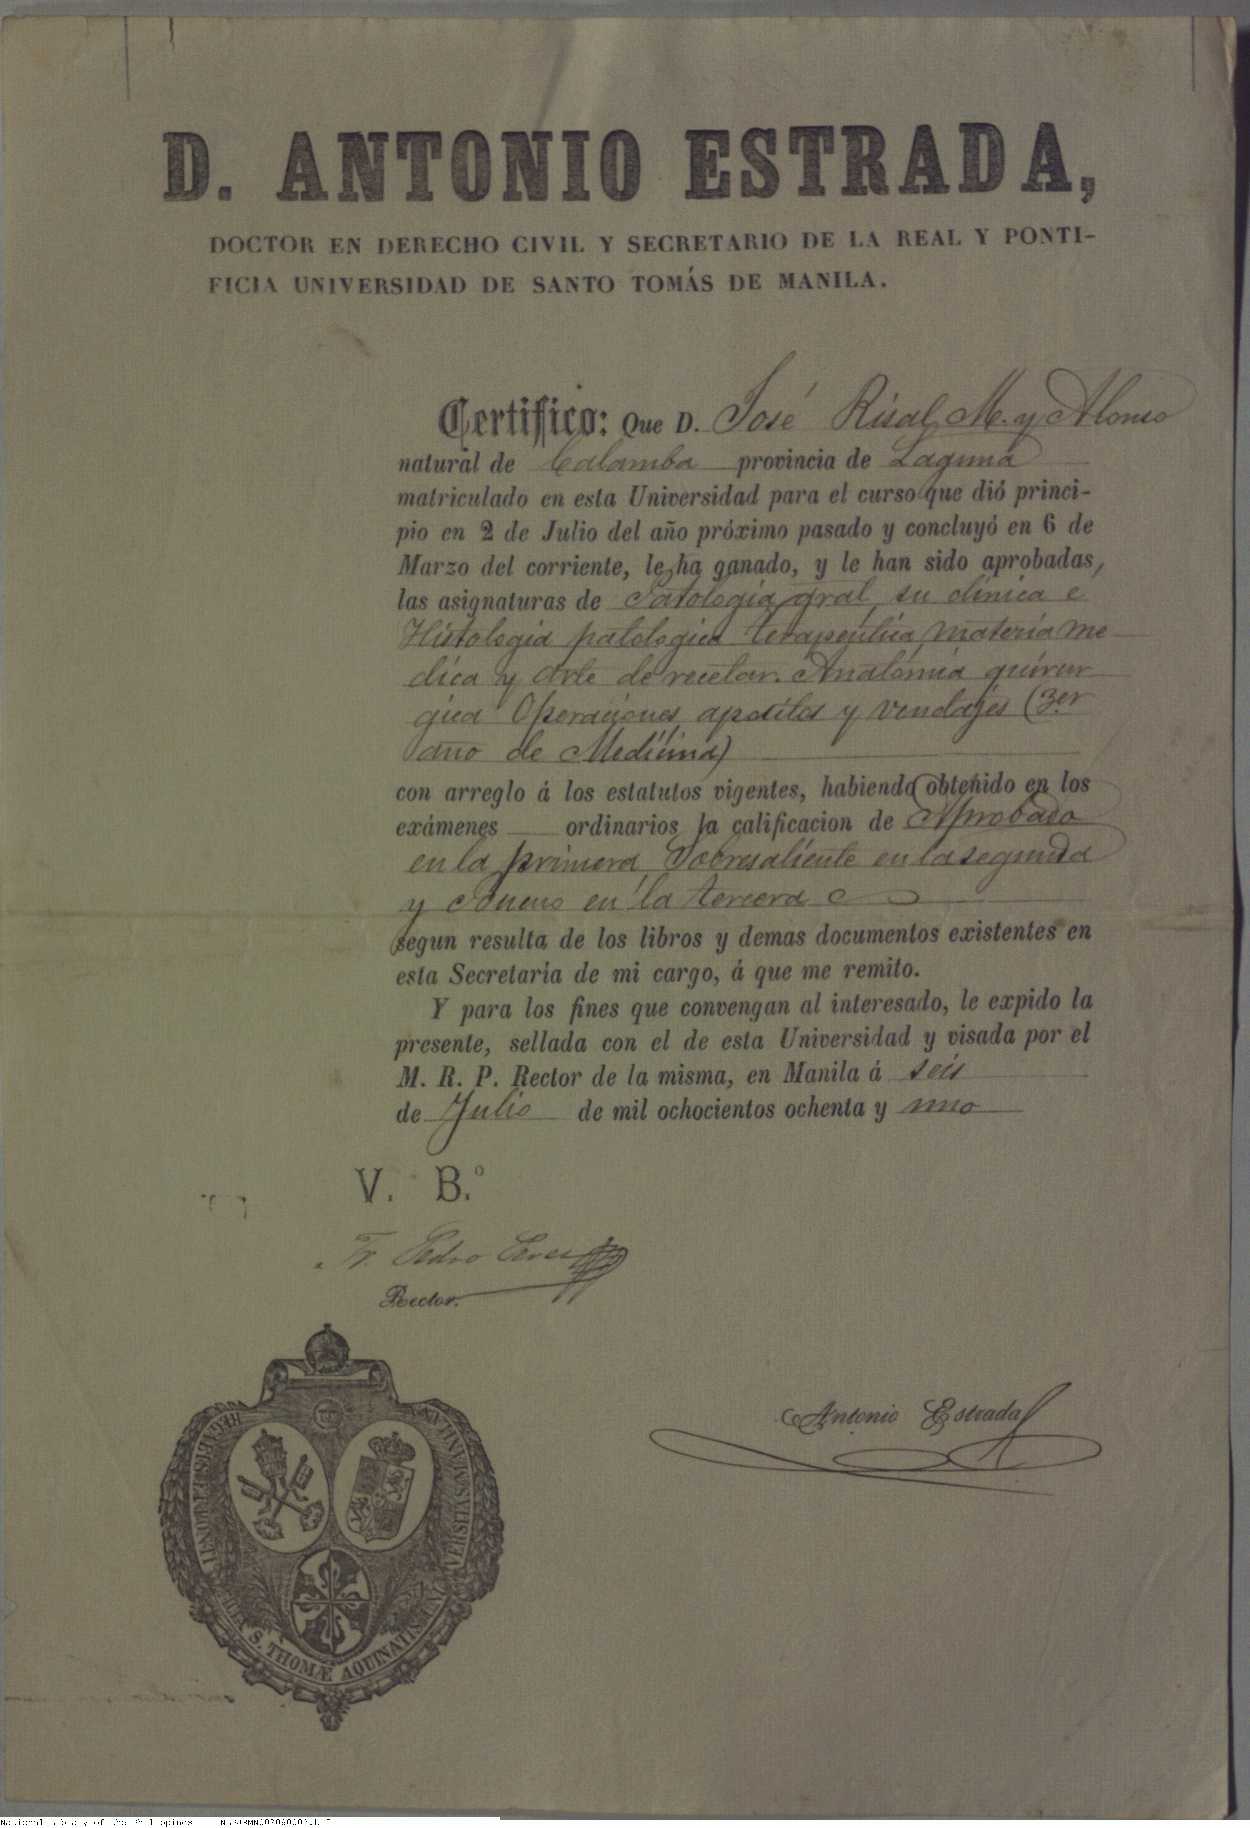 D. ANTONIO ESTRADA,
DOCTOR EN DERECHO CIVIL Y SECRETARIO DE LA REAL Y PONTI-
FICIA UNIVERSIDAD DE SANTO TOMÁS DE MANILA.
Certifico: Que D. José Risal M. y Alonso
natural de Calamba provincia de Laguna
matriculado en esta Universidad para el curso que dió princi-
pio en 2 de Julio del año próximo pasado y concluyó en 6 de
Marzo del corriente, le ha ganado, y le han sido aprobadas,
las asignaturas de Patologia gral, su clínica e
Histologia patologica terapeutica materia me
dica y arte de recetar. Anatomia quirur
gica Operaciones apositos y vendajes (3er
año de Medicina)
con arreglo á los estatutos vigentes, habiendo obtenido en los
exámenes ordinarios la calificacion de Aprobado
en la primera Sobresaliente en la segunda
y Bueno en la tercera
segun resulta de los libros y demas documentos existentes en
esta Secretaría de mi cargo, á que me remito.
Y para los fines que convengan al interesado, le expido la
presente, sellada con el de esta Universidad y visada por el
M. R. P. Rector de la misma, en Manila á seis
de Julio de mil ochocientos ochenta y uno
V. B.º
Fr. Pedro
Rector.
Antonio Estrada
S. THOMÆ AQUINATIS
National Library of the Philippines